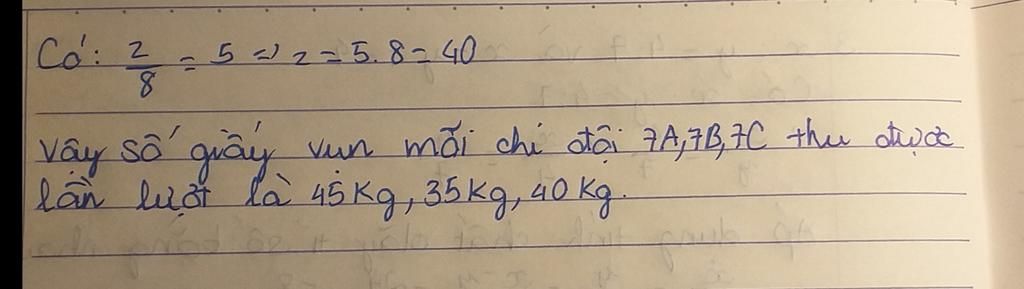 Có: z/8 = 5 => z = 5.8 = 40
Vậy số giấy vụn mỗi chi đội 7A, 7B, 7C thu được
lần lượt là 45 Kg, 35 kg, 40 Kg.